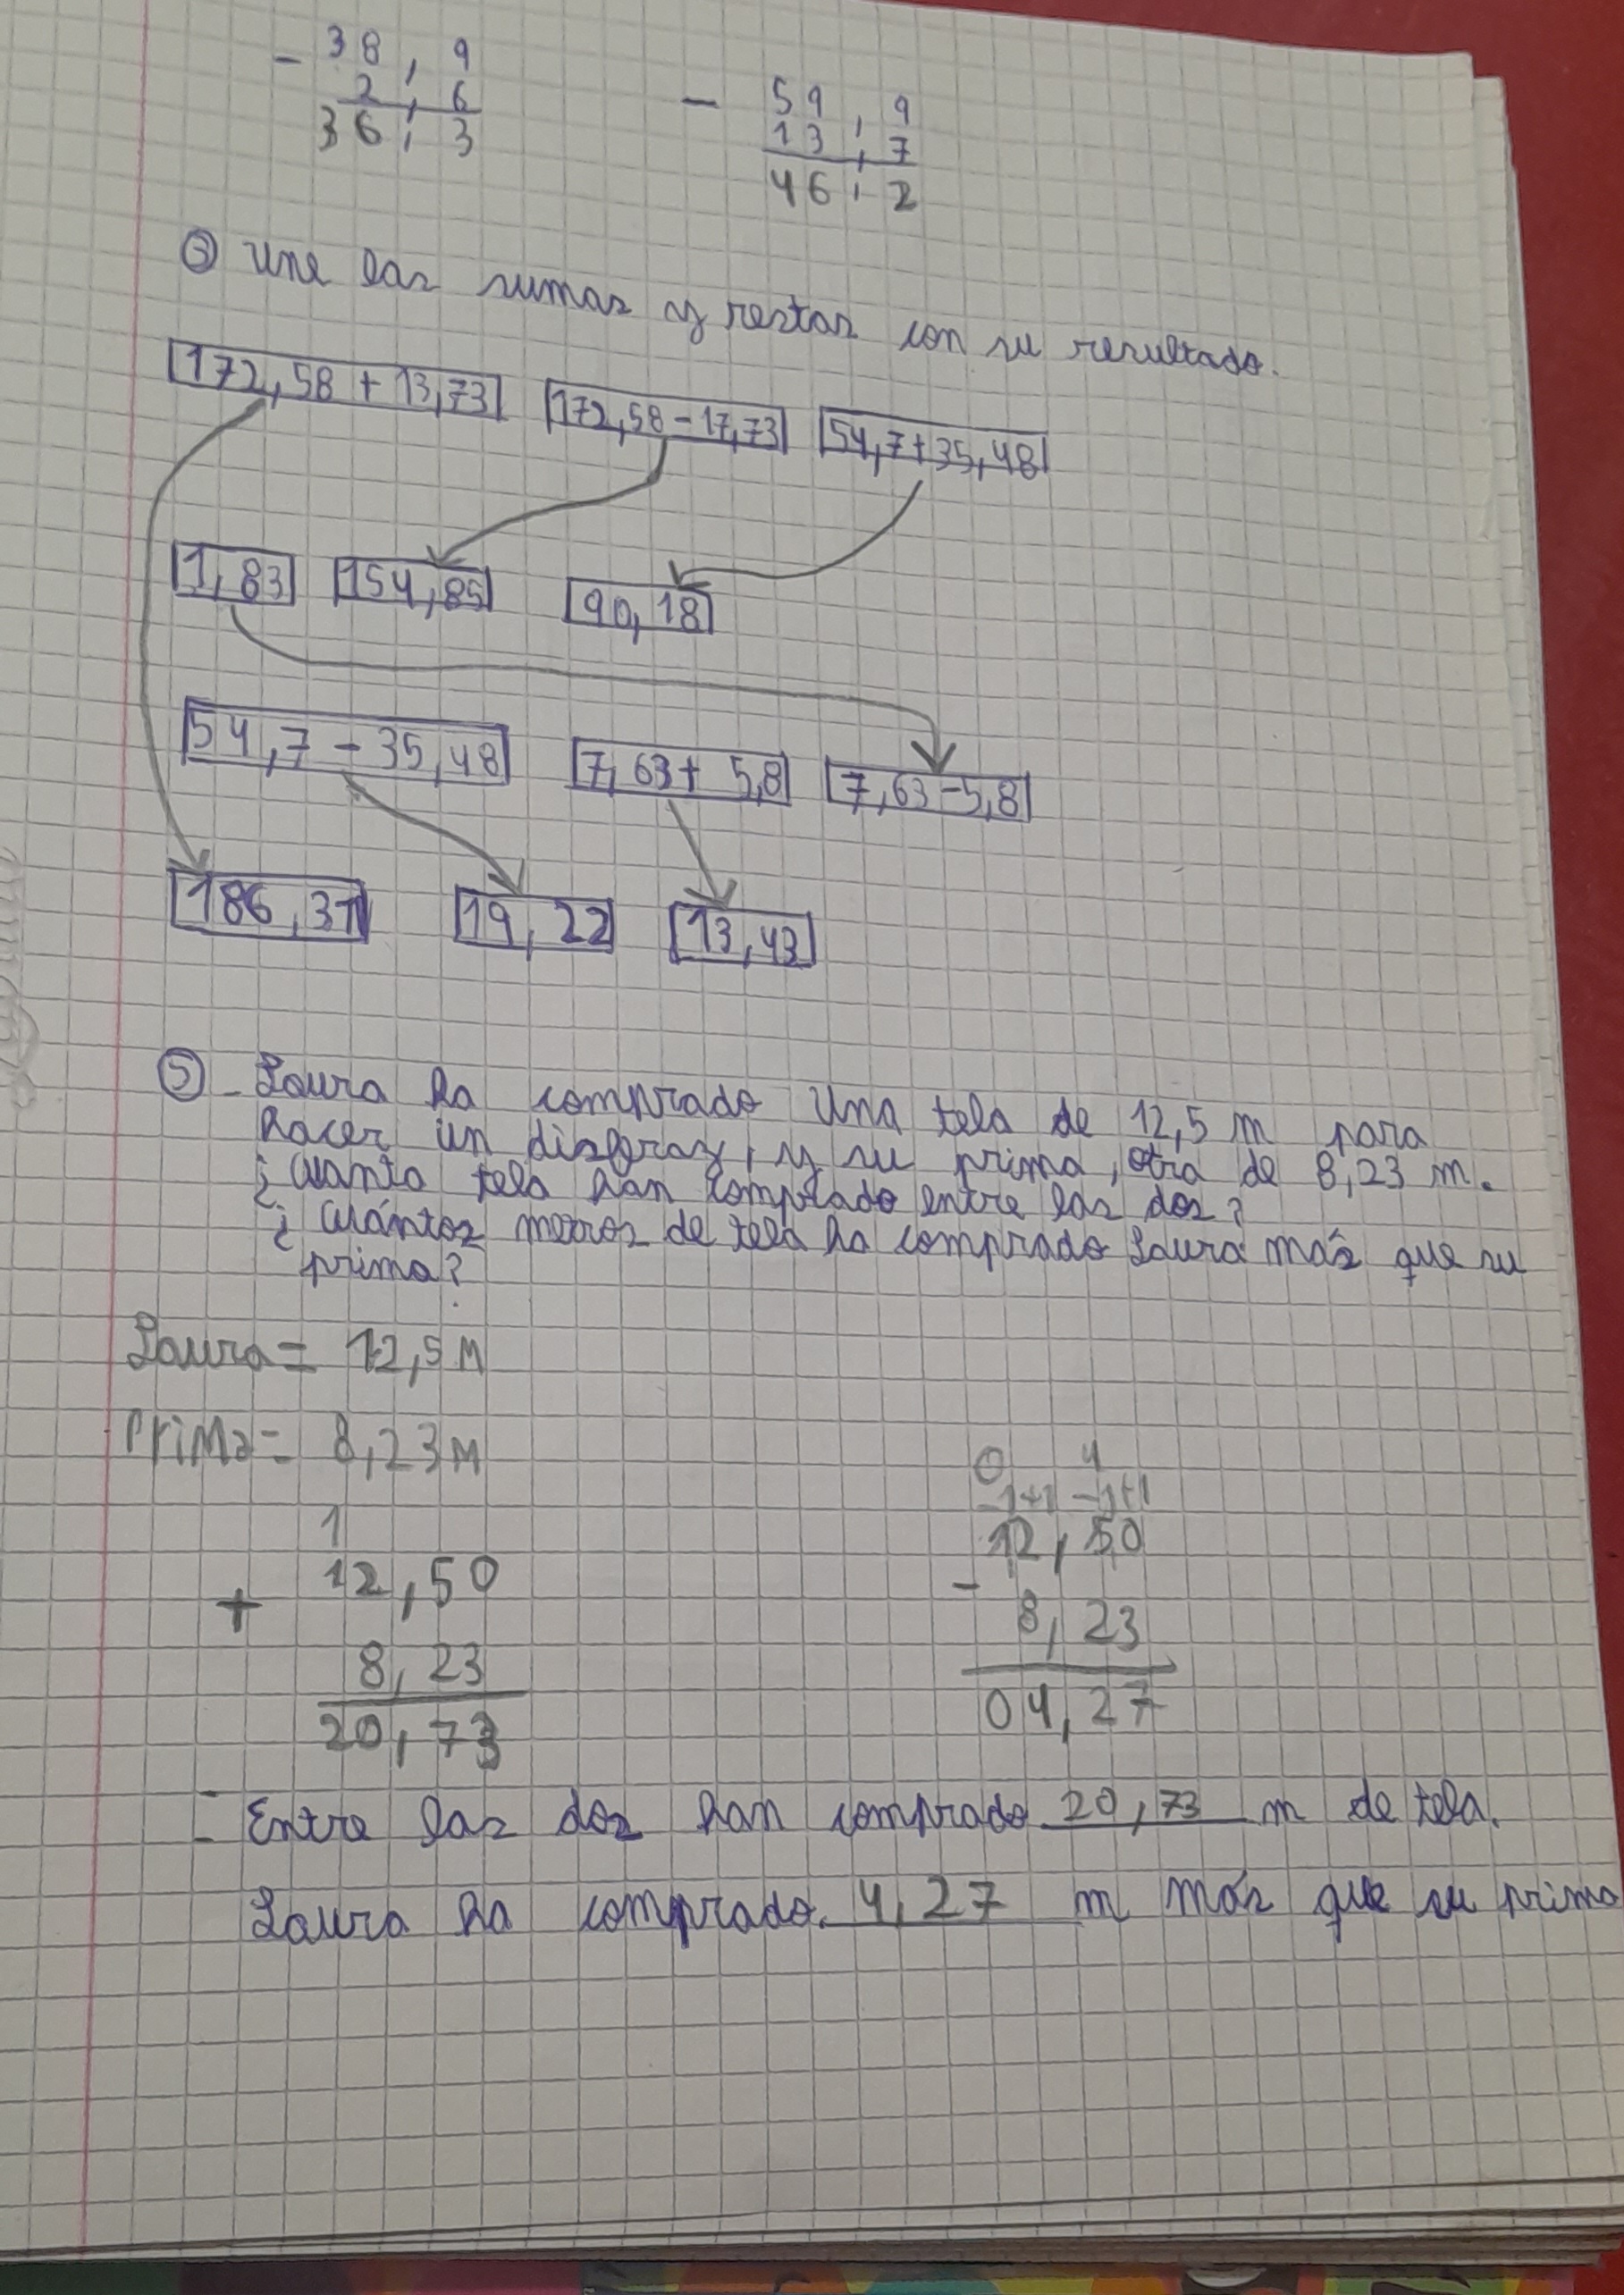 - 38,9
2,6
36,3
- 59,9
13,7
46,2
③ Une las sumas y restas con su resultado.
172,58 + 13,73 172,58 - 17,73 54,7 + 35,48
1,83 154,85 90,18
54,7 - 35,48 7,63 + 5,8 7,63 - 5,8
186,31 19,22 13,43
⑤ - Laura ha comprado una tela de 12,5 m para
hacer un disfraz, y su prima, otra de 8,23 m.
¿Cuanta tela han comprado entre las dos?
¿Cuántos metros de tela ha comprado Laura más que su
prima?
Laura = 12,5 M
Prima = 8,23 M
1
12,50
+
8,23
20,73
0 4
-1+1 -1+1
12,50
-
8,23
04,27
- Entre las dos han comprado 20,73 m de tela.
- Laura ha comprado 4,27 m más que su prima